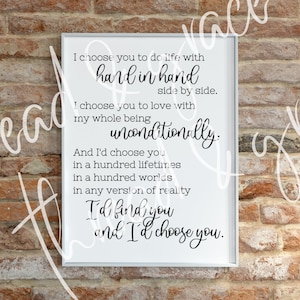 I choose you to do life with
hand in hand
side by side.
I choose you to love with
my whole being
unconditionally.
And I'd choose you
in a hundred lifetimes
in a hundred worlds
in any version of reality
I'd find you
and I'd choose you.